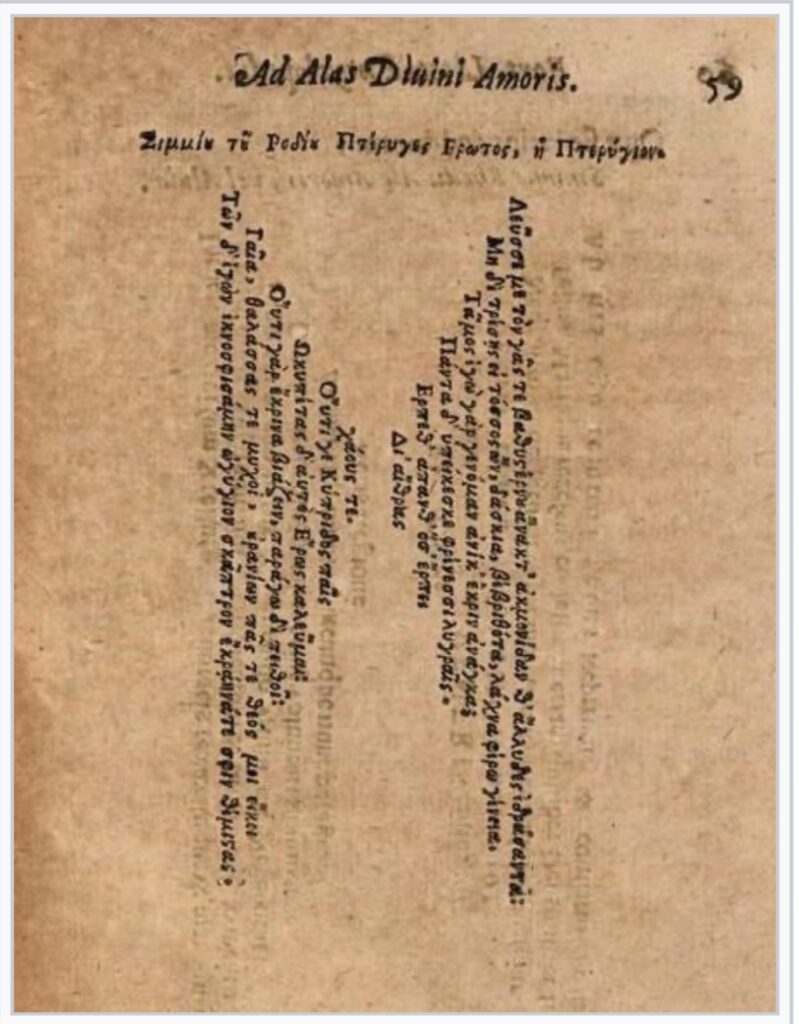 Ad Alas Diuini Amoris.
59
Σιμμίου τοῦ Ροδίου Πτέρυγες Ερωτος, ἢ Πτερύγιον.
Λεῦσσέ με τὸν γᾶς τε βαθυςέρνου ἄνακτ' ἀκμονίδαν θ' ἄλλυδις ἑδράσαντα:
Μὴ δὲ τρέσῃς εἰ τόσσος ὢν, δάσκια, βεβριθότα, λάχνα φέρω γένεια.
Τᾶμος ἐγὼ γὰρ γενόμαν ἁνίκ' ἔκριν' ἀνάγκα:
Πάντα δ' ὑπείκεσκε φρίνεσσι λυγραῖς.
Ερπεθ' ἁπανθ' ὅσ' ἕρπει
Δι' αἴθρας
χάους τε.
Οὔτι γε Κύπριδος παῖς
Ωκυπέτας δ' αὐτὸς Ερως καλεῦμαι:
Οὔτι γὰρ ἔκρινα βιάζειν, παράγω δὲ πειθοῖ:
Γαῖα, θαλάσσας τε μυχοὶ, οὐρανίων πᾶς τε θεός μοι εἴκει
Τῶν δ' ἐγὼν ἐκνοσφισάμην ὠγύγιον σκᾶπτρον ἔκραινάτε σφιν θέμιστας: